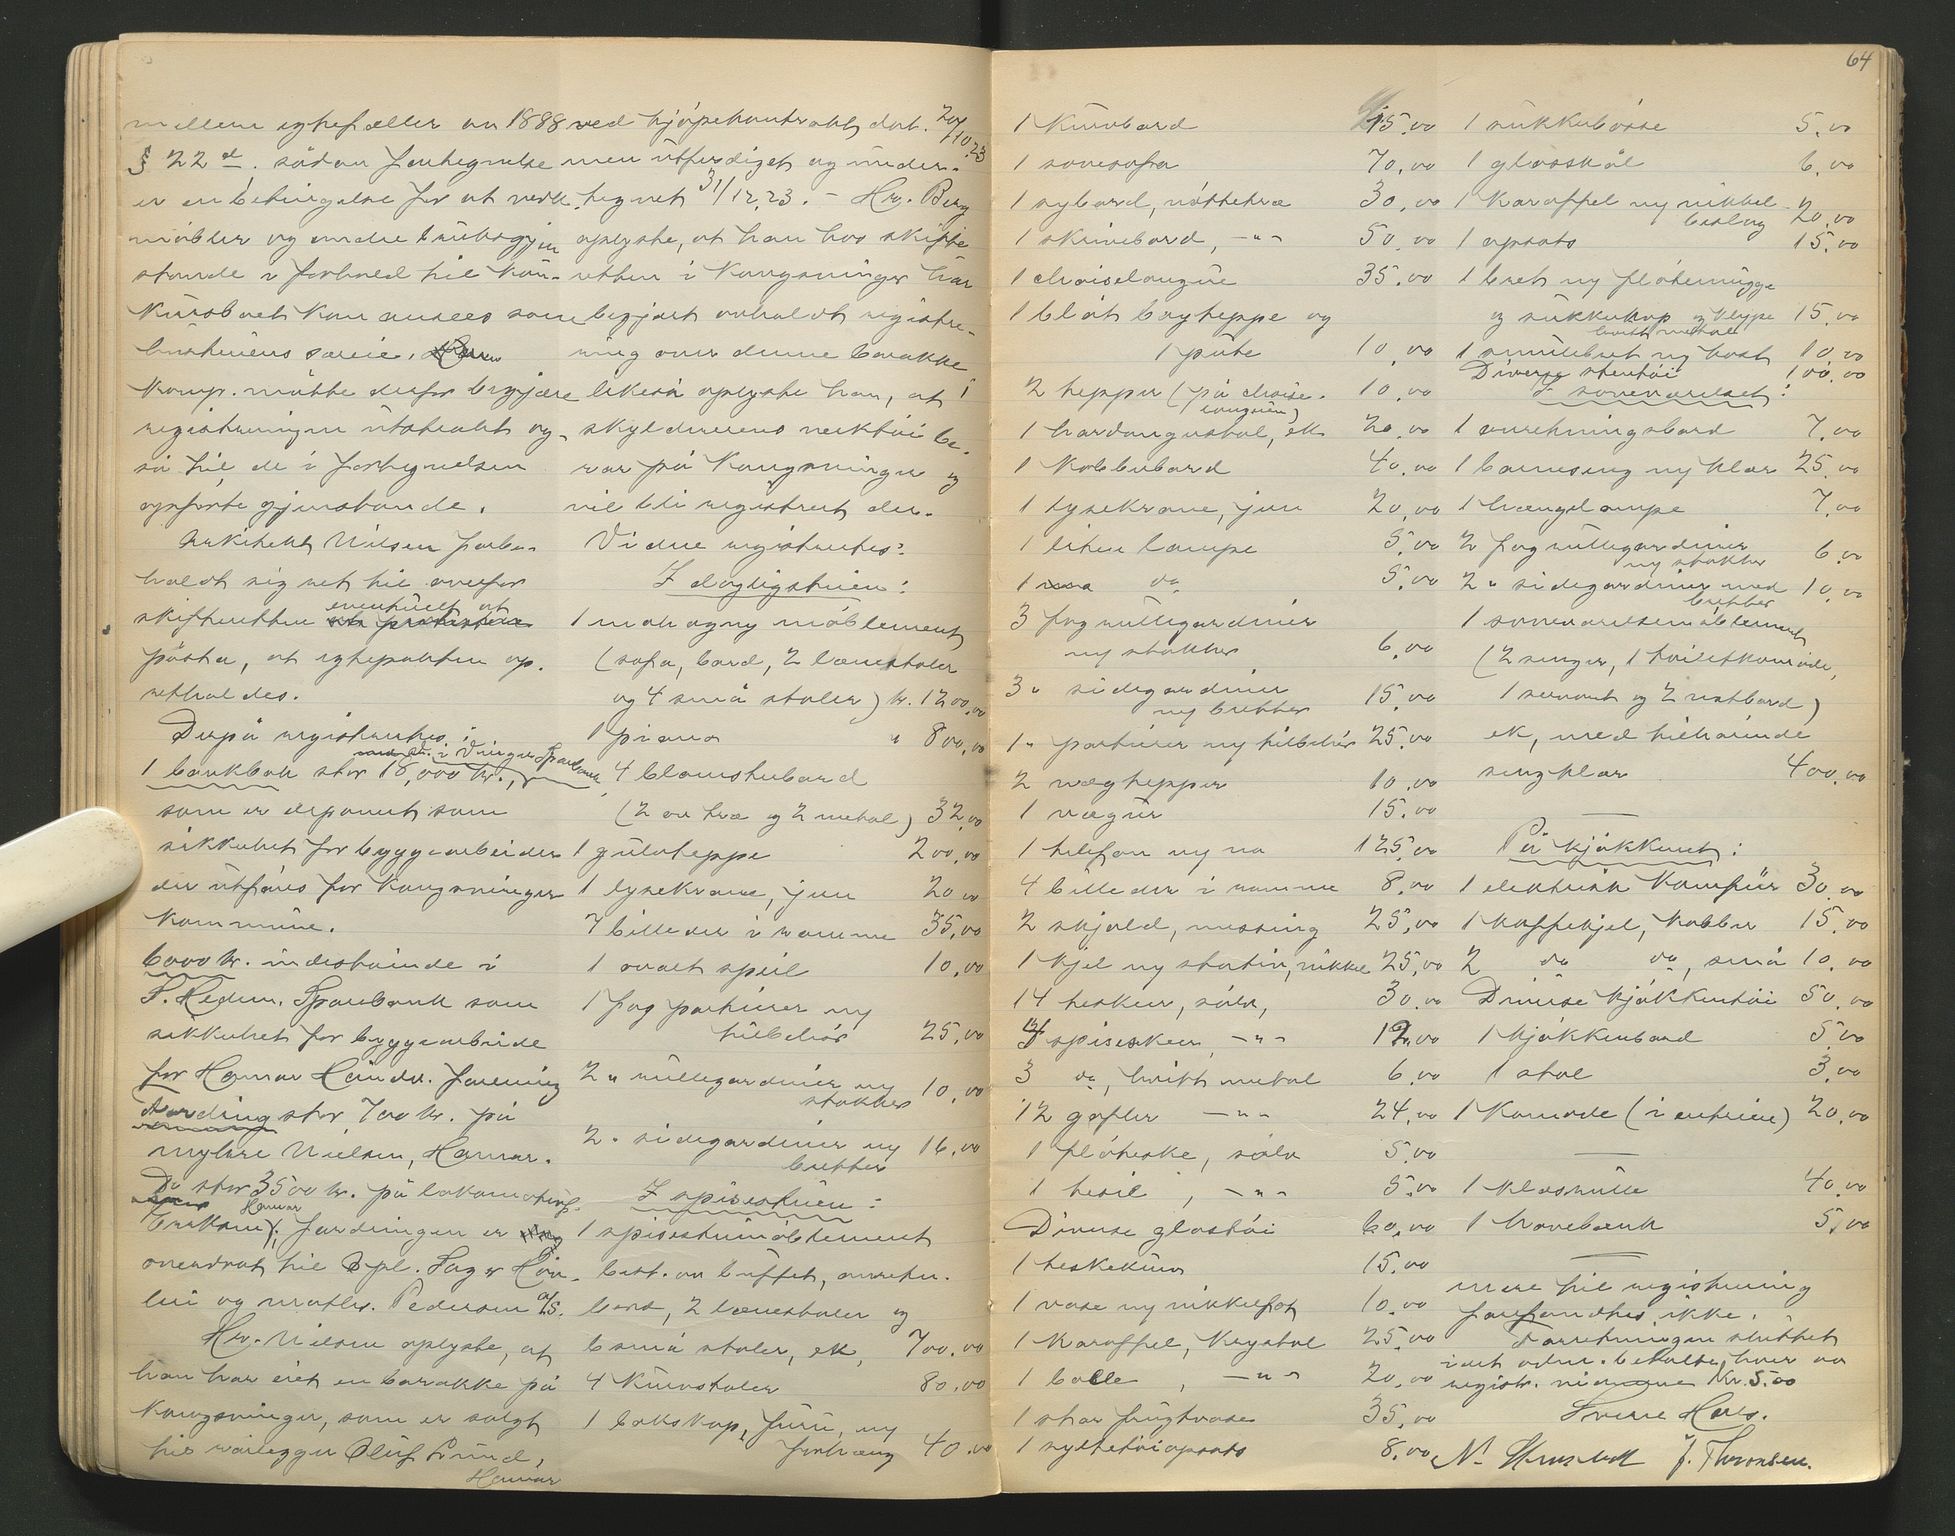 mellem egtefæller av 1888
§ 22 d. sådan fortegnelse
er en betingelse for at
møbler og andre bruksgjen
stande i forhold til kon-
kursboet kan ansees som
hustruens særeie.
Komp. måtte derfor begjære
registreringen utstrakt og-
så til de i fortegnelsen
opførte gjenstande.
Arkitekt Nilsen forbe-
holdt sig ret til overfor
skifteretten eventuelt at
påsta, at egtepakten op-
retholdes.
Derpå registrertes:
1 bankbok stor 18,000 kr., i Vinger Sparebank,
som er deponert som
sikkerhet for byggearbeider
der utføres for Kongsvinger
Kommune.
6000 kr. indestående i
S. Hedm. Sparebank som
sikkerhet for byggearbeide
for Hamar Håndv. forening
Fordring stor 700 kr. på
Nielsen, Hamar.
Do stor 3500 kr. på
Hamar
fordringen er
overdrat til
og Pedersen A/S.
Hr. Nilsen oplyste, at
han har eiet en barakke på
Kongsvinger, som er solgt
til rørlegger Oluf Lund,
Hamar
ved kjøpekontrakt dat. 20/10.23
men utferdiget og under-
tegnet 31/12.23. – Hr. Berg
oplyste, at han hos skifte
retten i Kongsvinger har
begjært avholdt registre-
ring over denne barakke
likeså oplyste han, at
skyldnerens verktøi be-
ror på Kongsvinger og
vil bli registrert der.
Videre registrertes:
I dagligstuen:
1 mahogny møblement
(sofa, bord, 2 lænestoler
og 4 små stoler) kr. 1200,00
1 piano " 800,00
4 blomsterbord
(2 av træ og 2 metal) 32,00
1 gulvteppe 200,00
1 lysekrone, jern 20,00
7 billeder i ramme 35,00
1 ovalt speil 10,00
1 fag portierer m/
tilbehør 25,00
2 " rullegardiner m/
stokker 10,00
2 " sidegardiner m/
bretter 16,00
I spisestuen:
1 spisestuemøblement
best. av buffet, anretn.
bord, 2 lænestoler og
6 små stoler, ek, 700,00
4 Kurvstoler 80,00
1 bokskap, furu, m/
forhæng 40,00
64
1 Kurvbord 15,00
1 sovesofa 70,00
1 sybord, nøttetræ 30,00
1 skrivebord, – " – 50,00
1 chaiselongue 35,00
1 blåt bogteppe og
1 pute 10,00
2 tepper (på chaise-
longuen) 10,00
1 hardangerstol, ek 20,00
1 Kobberbord 40,00
1 lysekrone, jern 20,00
1 liten lampe 5,00
1 do. 5,00
3 fag rullegardiner
m/ stokker 6,00
3 " sidegardiner
m/ bretter 15,00
1 " portierer m/ tilbehør 25,00
2 vægtepper 10,00
1 vægur 15,00
1 telefon m/ no 125,00
4 billeder i ramme 8,00
2 skjold, messing 25,00
1 kjel m/ stativ, nikkel 25,00
14 teskeer, sølv, 30,00
4 spiseskeer, – " – 12,00
3 do, hvitt metal 6,00
12 gafler – " – 24,00
1 fløteske, sølv 5,00
1 tesil, – " – 5,00
Diverse glastøi 60,00
1 teskekurv 15,00
1 vase m/ nikkelfot 10,00
1 Karaffel, Krystal 25,00
1 bolle, – " – 20,00
1 stor frugtvase 35,00
1 syltetøiopsats 8,00
1 sukkerbøsse 5,00
1 glasskål 6,00
1 Karaffel m/ nikkel
beslag 20,00
1 opsats 15,00
1 bret m/ fløtemugge
og sukkerkop og klype 15,00
hvitt metal
1 smulebret m/ kost 10,00
Diverse stentøi 100,00
I soveværelset:
1 anretningsbord 7,00
1 barneseng m/ klær 25,00
1 hængelampe 7,00
2 fag rullegardiner
m/ stokker 6,00
2 " sidegardiner med
bretter 10,00
1 soveværelsemøblement
(2 senger, 1 toiletkomode,
1 servant og 2 natbord)
ek, med tilhørende
sengklær 400,00
På kjøkkenet:
1 elektrisk Komfur 30,00
1 kaffekjel, Kobber 15,00
2 do do, små 10,00
Diverse kjøkkentøi 50,00
1 kjøkkenbord 5,00
1 stol 3,00
1 Komode (i entréen) 20,00
1 klæsrulle 40,00
1 havebænk 5,00
Mere til registrering
forefandtes ikke.
Forretningen sluttet
registr. vidnene Kr. 5.00
J. Thoransen.